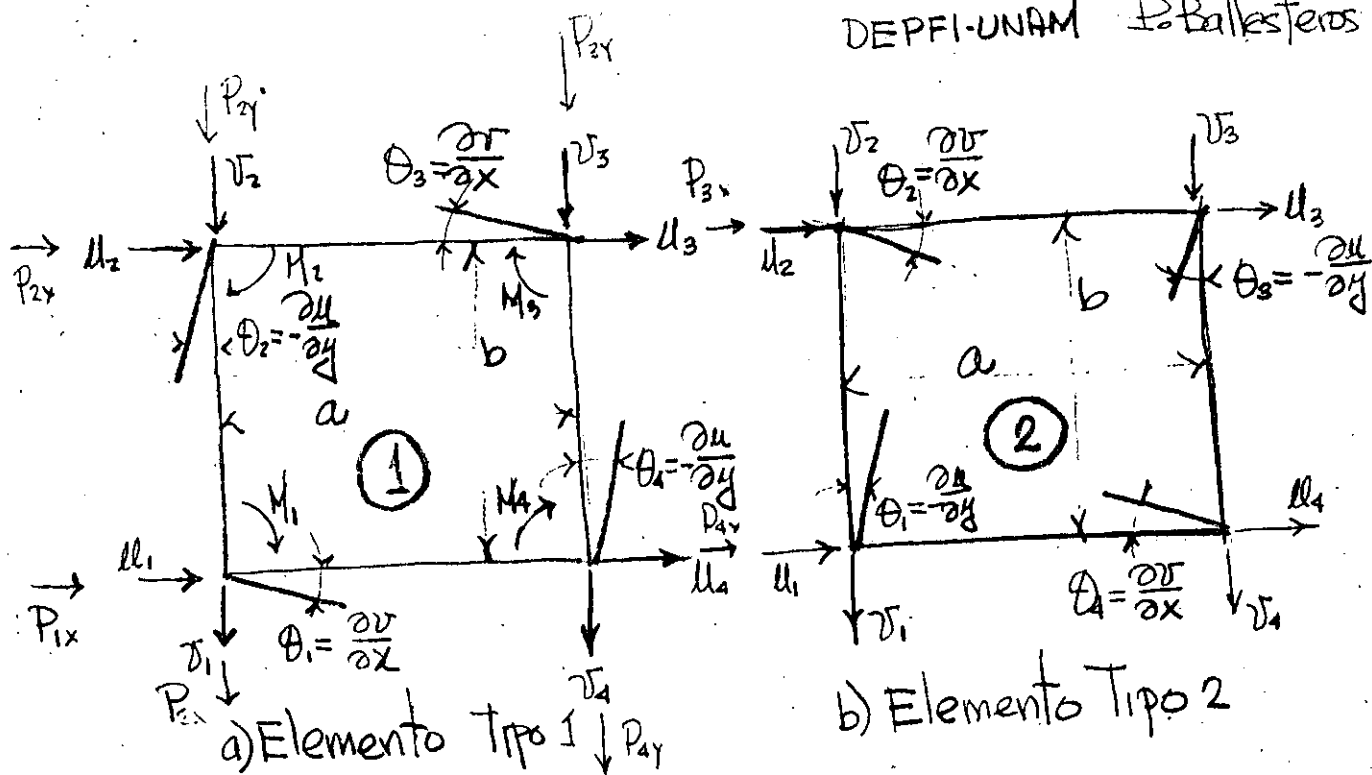 DEPFI-UNAM P. Ballesteros
P2Y
P2Y
v2
θ3 = ∂v/∂x
v3
P3x
P2x
u2
M2
u3
M3
θ2 = -∂u/∂y
b
a
1
θ4 = -∂u/∂y
M1
M4
P4x
u1
u4
P1x
v1
θ1 = ∂v/∂x
v4
P4Y
a) Elemento Tipo 1
v2
θ2 = ∂v/∂x
v3
u2
u3
b
θ3 = -∂u/∂y
a
2
θ1 = -∂u/∂y
u1
u4
v1
θ4 = ∂v/∂x
v4
b) Elemento Tipo 2